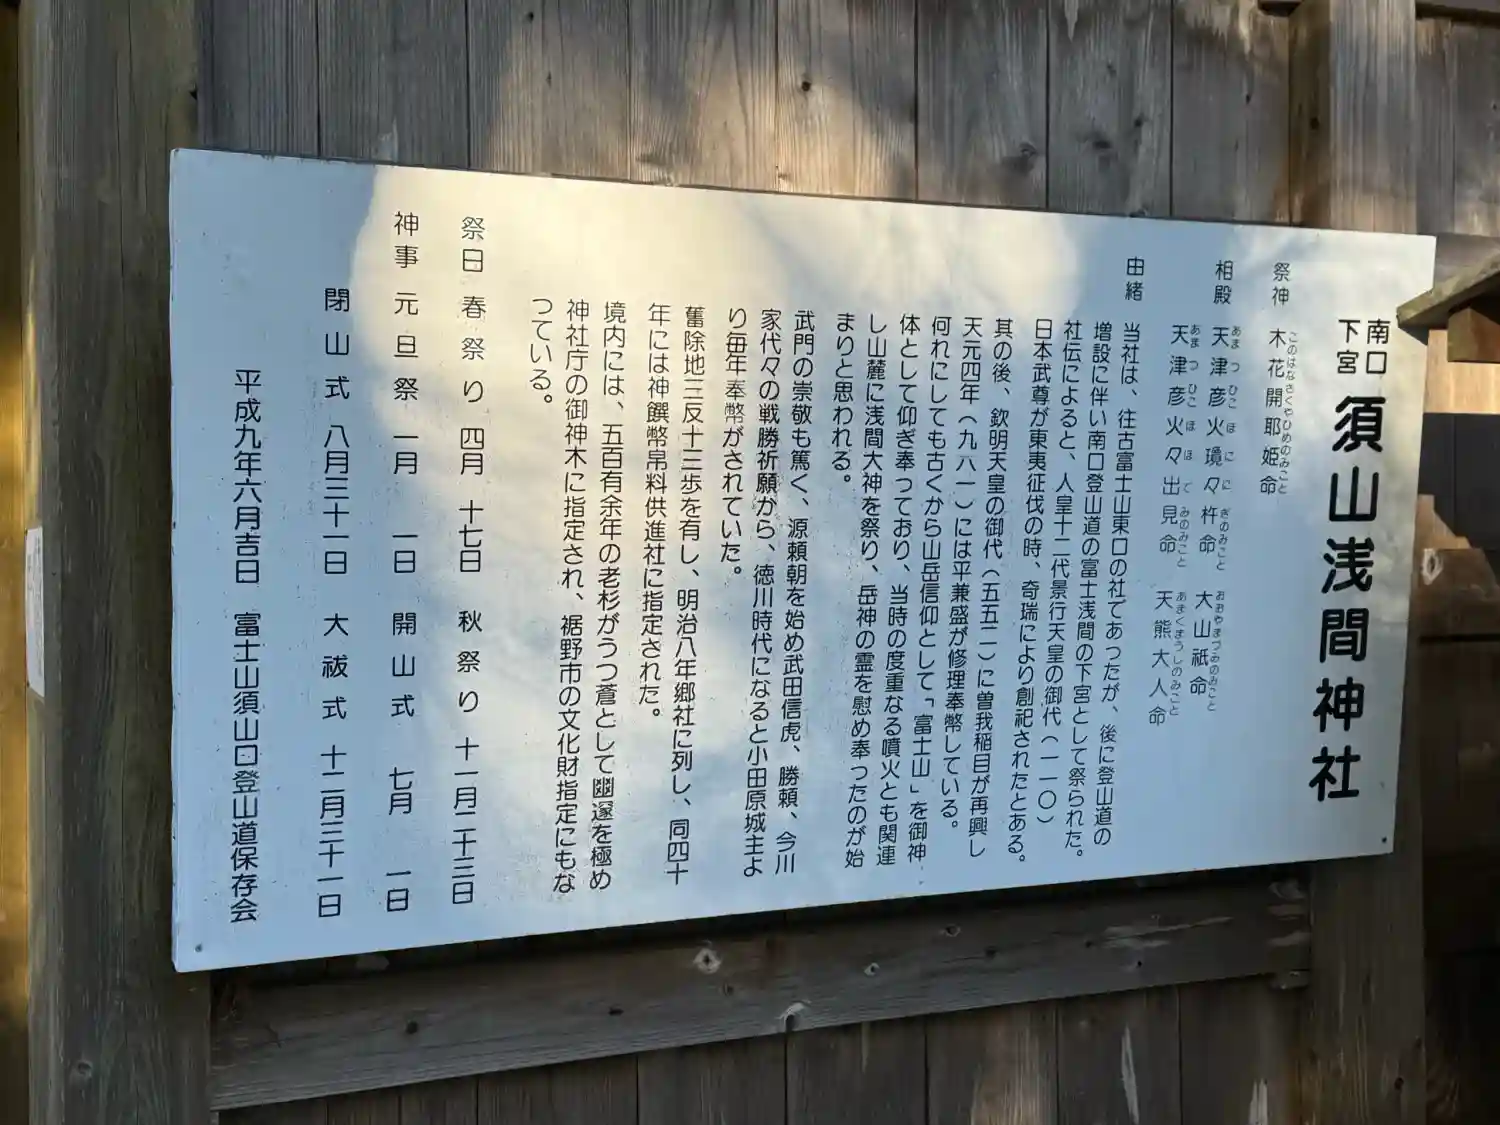 南口
下宮
須山浅間神社
祭神 木花開耶姫命
このはなさくやひめのみこと
相殿 天津彦火瓊々杵命 大山祇命
あまつひこほににぎのみこと おおやまづみのみこと
天津彦火々出見命 天熊大人命
あまつひこほほでみのみこと あまくまうしのみこと
由緒
当社は、往古富士山東口の社であったが、後に登山道の
増設に伴い南口登山道の富士浅間の下宮として祭られた。
社伝によると、人皇十二代景行天皇の御代（一一〇）
日本武尊が東夷征伐の時、奇瑞により創祀されたとある。
其の後、欽明天皇の御代（五五二）に曽我稲目が再興し
天元四年（九八一）には平兼盛が修理奉幣している。
何れにしても古くから山岳信仰として「富士山」を御神
体として仰ぎ奉っており、当時の度重なる噴火とも関連
し山麓に浅間大神を祭り、岳神の霊を慰め奉ったのが始
まりと思われる。
武門の崇敬も篤く、源頼朝を始め武田信虎、勝頼、今川
家代々の戦勝祈願から、徳川時代になると小田原城主よ
り毎年奉幣がされていた。
舊除地三反十三歩を有し、明治八年郷社に列し、同四十
年には神饌幣帛料供進社に指定された。
境内には、五百有余年の老杉がうつ蒼として幽邃を極め
神社庁の御神木に指定され、裾野市の文化財指定にもな
っている。
祭日 春祭り 四月 十七日 秋祭り 十一月二十三日
神事 元旦祭 一月 一日 開山式 七月 一日
閉山式 八月三十一日 大祓式 十二月三十一日
平成九年六月吉日 富士山須山口登山道保存会